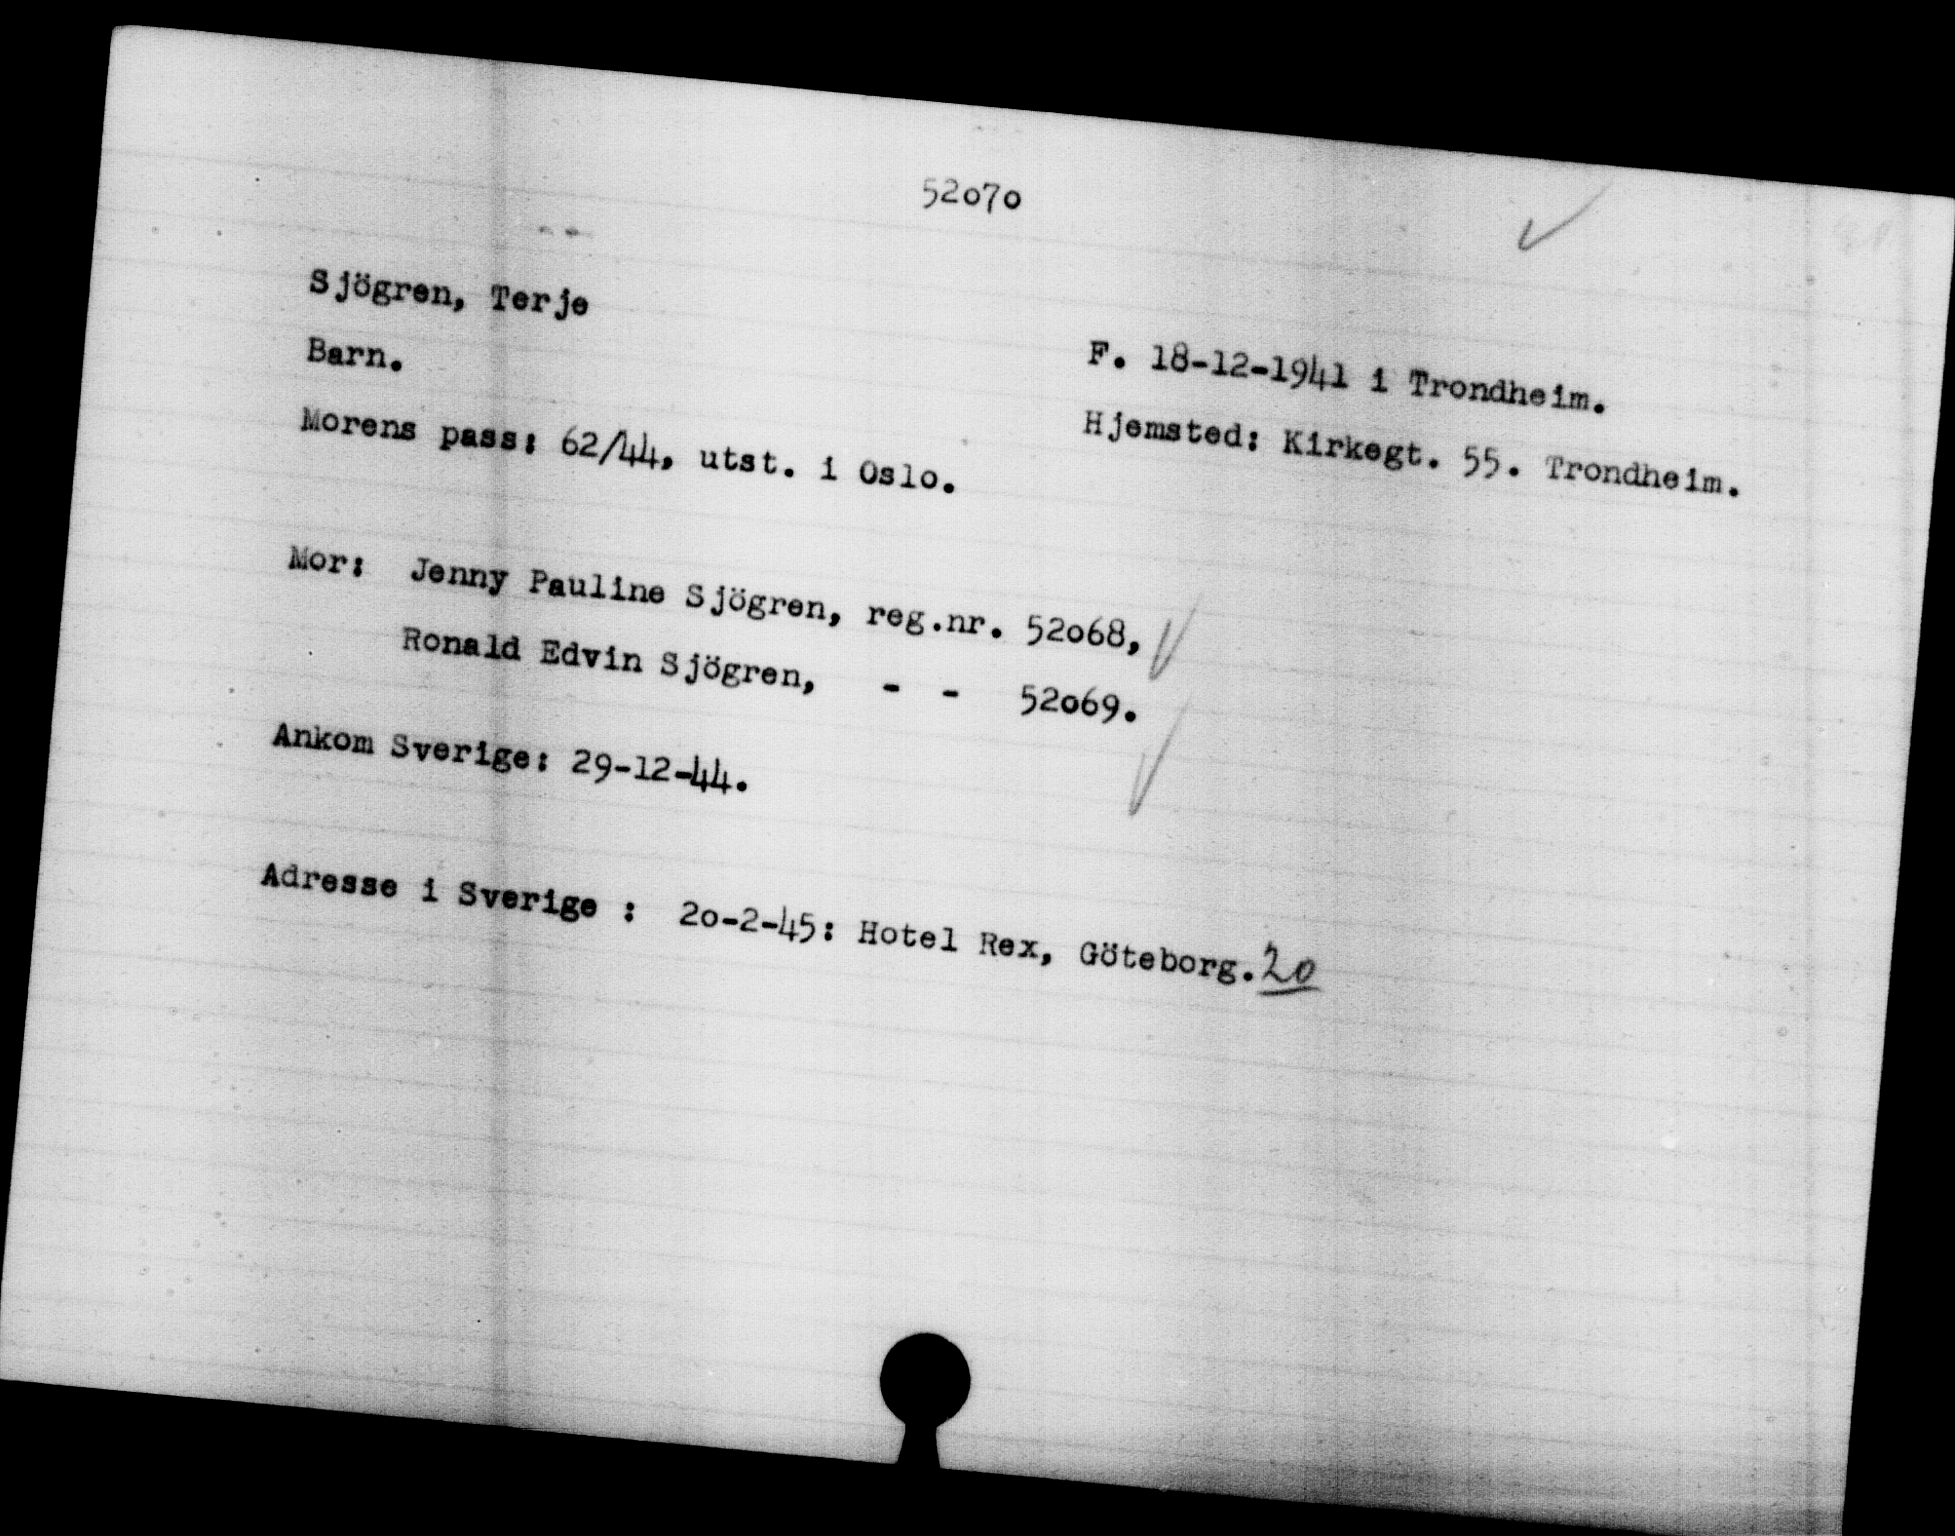 52070
Sjögren, Terje
Barn.
F. 18-12-1941 i Trondheim.
Morens pass: 62/44, utst. i Oslo.
Hjemsted: Kirkegt. 55. Trondheim.
Mor: Jenny Pauline Sjögren, reg.nr. 52068,
Ronald Edvin Sjögren, - - 52069.
Ankom Sverige: 29-12-44.
Adresse i Sverige : 20-2-45: Hotel Rex, Göteborg. 20